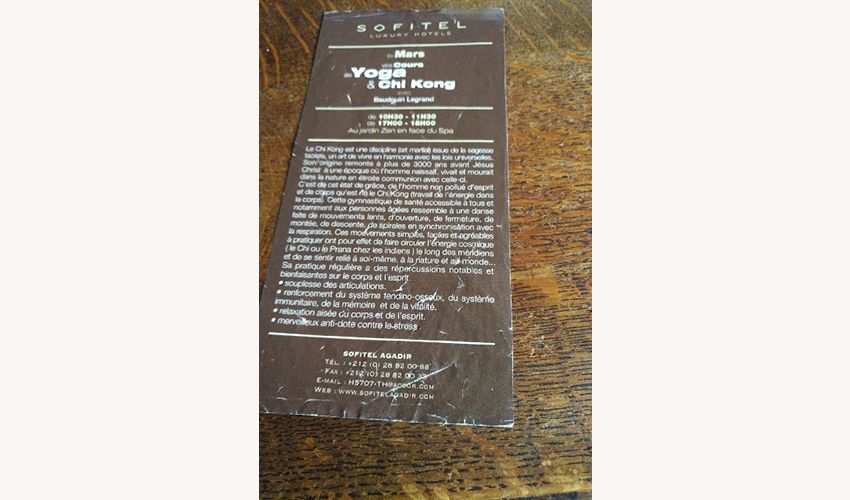 SOFITEL
LUXURY HOTELS
En Mars
vos Cours
de Yoga
& Chi Kong
avec
Baudouin Legrand
de 10H30 - 11H30
de 17H00 - 18H00
Au jardin Zen en face du Spa
Le Chi Kong est une discipline (art martial) issue de la sagesse
taoiste, un art de vivre en harmonie avec les lois universelles.
Son origine remonte à plus de 3000 ans avant Jésus
Christ à une époque où l'homme naissait, vivait et mourait
dans la nature en étroite communion avec celle-ci.
C'est de cet état de grâce, de l'homme non pollué d'esprit
et de corps qu'est né le Chi Kong (travail de l'énergie dans
le corps). Cette gymnastique de santé accessible à tous et
notamment aux personnes âgées ressemble à une danse
faite de mouvements lents, d'ouverture, de fermeture, de
montée, de descente, de spirales en synchronisation avec
la respiration. Ces mouvements simples, faciles et agréables
à pratiquer ont pour effet de faire circuler l'énergie cosmique
( le Chi ou le Prana chez les indiens ) le long des méridiens
et de se sentir relié à soi-même, à la nature et au monde...
Sa pratique régulière a des répercussions notables et
bienfaisantes sur le corps et l'esprit
• souplesse des articulations.
• renforcement du système tendino-osseux, du système
immunitaire, de la mémoire et de la vitalité.
• relaxation aisée du corps et de l'esprit.
• merveilleux anti-dote contre le stress
SOFITEL AGADIR
TÉL. : +212 (0) 28 82 00 88
FAX : +212 (0) 28 82 00 33
E-MAIL : H5707-TH@ACCOR.COM
WEB : WWW.SOFITELAGADIR.COM